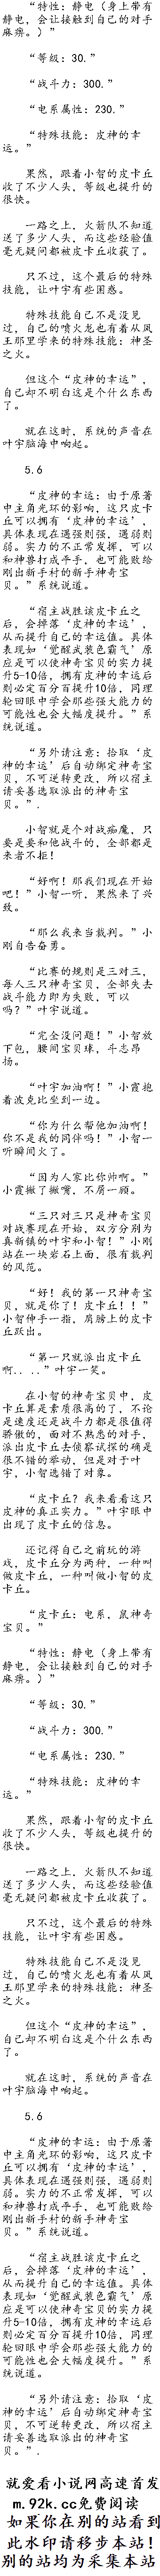 “特性：静电（身上带有
静电，会让接触到自己的对手
麻痹。）”
“等级：30.”
“战斗力：300.”
“电系属性：230.”
“特殊技能：皮神的幸
运。”
果然，跟着小智的皮卡丘
收了不少人头，等级也提升的
很快。
一路之上，火箭队不知道
送了多少人头，而这些经验值
毫无疑问都被皮卡丘收获了。
只不过，这个最后的特殊
技能，让叶宇有些困惑。
特殊技能自己不是没见
过，自己的喷火龙也有着从凤
王那里学来的特殊技能：神圣
之火。
但这个“皮神的幸运”，
自己却不明白这是个什么东西
了。
就在这时，系统的声音在
叶宇脑海中响起。
5.6
“皮神的幸运：由于原著
中主角光环的影响，这只皮卡
丘可以拥有‘皮神的幸运’，
具体表现在遇强则强，遇弱则
弱。实力的不正常发挥，可以
和神兽打成平手，也可能败给
刚出新手村的新手神奇宝
贝。”系统说道。
“宿主战胜该皮卡丘之
后，会掉落‘皮神的幸运’，
从而提升自己的幸运值。具体
表现如‘觉醒武装色霸气’原
应是可以使神奇宝贝的实力提
升5-10倍，拥有皮神的幸运后
则必定百分百提升10倍，同理
轮回眼中学会那些强大能力的
可能性也会大幅度提升。”系
统说道。
“另外请注意：拾取‘皮
神的幸运’后自动绑定神奇宝
贝，不可逆转更改，所以宿主
请妥善选取派出的神奇宝
贝。”.
小智就是个对战痴魔，只
要是要和他战斗的，全部都是
来者不拒！
“好啊！那我们现在开始
吧！”小智一听，果然来了兴
致。
“那么我来当裁判。”小
刚自告奋勇。
“比赛的规则是三对三，
每人三只神奇宝贝，全部失去
战斗能力即为失败，可以
吗？”叶宇说道。
“完全没问题！”小智放
下包，腰间宝贝球，斗志昂
扬。
“叶宇加油啊！”小霞抱
着波克比坐到一边。
“你为什么帮他加油啊！
你不是我的同伴吗！”小智一
听瞬间火了。
“因为人家比你帅啊。”
小霞撇了撇嘴，不屑一顾。
“三只对三只是神奇宝贝
对战赛现在开始，双方分别为
真新镇的叶宇和小智！”小刚
站在一块岩石上面，很有裁判
的风范。
“好！我的第一只神奇宝
贝，就是你了！皮卡丘！！”
小智伸手一指，肩膀上的皮卡
丘跃出。
“第一只就派出皮卡丘
啊....”叶宇一笑。
在小智的神奇宝贝中，皮
卡丘算是素质很高的了，不论
是速度还是战斗力都是很值得
骄傲的，面对不熟悉的对手，
派出皮卡丘去侦察试探的确是
很不错的举动，但是对于叶
宇，小智选错了对象。
“皮卡丘？我来看看这只
皮神的真正实力。”叶宇眼中
出现了皮卡丘的信息。
还记得自己之前玩的游
戏，皮卡丘分为两种，一种叫
做皮卡丘，一种叫做小智的皮
卡丘。
“皮卡丘：电系，鼠神奇
宝贝。”
“特性：静电（身上带有
静电，会让接触到自己的对手
麻痹。）”
“等级：30.”
“战斗力：300.”
“电系属性：230.”
“特殊技能：皮神的幸
运。”
果然，跟着小智的皮卡丘
收了不少人头，等级也提升的
很快。
一路之上，火箭队不知道
送了多少人头，而这些经验值
毫无疑问都被皮卡丘收获了。
只不过，这个最后的特殊
技能，让叶宇有些困惑。
特殊技能自己不是没见
过，自己的喷火龙也有着从凤
王那里学来的特殊技能：神圣
之火。
但这个“皮神的幸运”，
自己却不明白这是个什么东西
了。
就在这时，系统的声音在
叶宇脑海中响起。
5.6
“皮神的幸运：由于原著
中主角光环的影响，这只皮卡
丘可以拥有‘皮神的幸运’，
具体表现在遇强则强，遇弱则
弱。实力的不正常发挥，可以
和神兽打成平手，也可能败给
刚出新手村的新手神奇宝
贝。”系统说道。
“宿主战胜该皮卡丘之
后，会掉落‘皮神的幸运’，
从而提升自己的幸运值。具体
表现如‘觉醒武装色霸气’原
应是可以使神奇宝贝的实力提
升5-10倍，拥有皮神的幸运后
则必定百分百提升10倍，同理
轮回眼中学会那些强大能力的
可能性也会大幅度提升。”系
统说道。
“另外请注意：拾取‘皮
神的幸运’后自动绑定神奇宝
贝，不可逆转更改，所以宿主
请妥善选取派出的神奇宝
贝。”.
就爱看小说网高速首发
m.92k.cc免费阅读
如果你在别的站看到
此水印请移步本站！
别的站均为采集本站